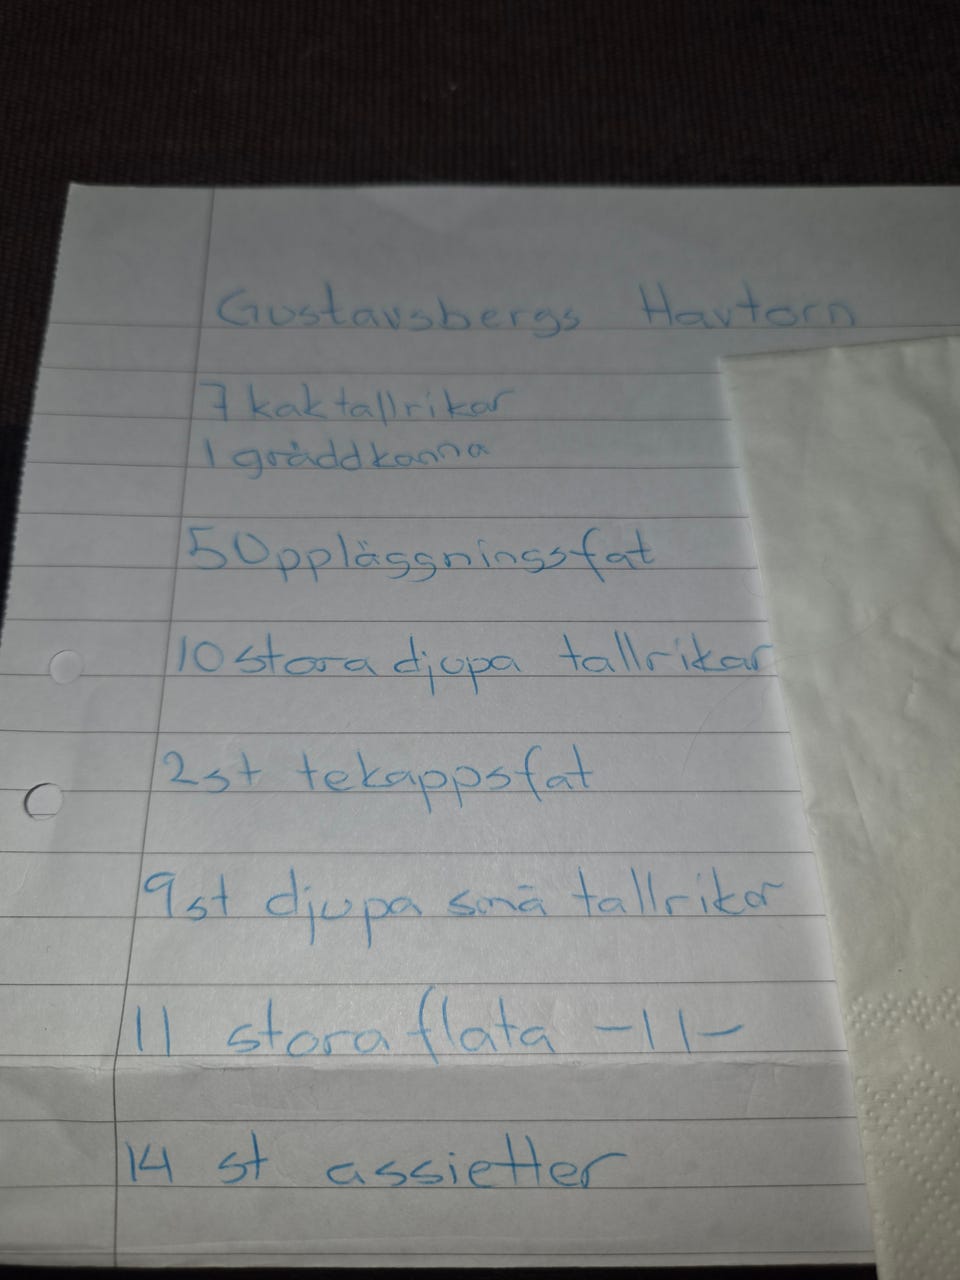 Gustavsbergs Havtorn
7 kaktallrikar
1 gräddkanna
5 Uppläggningsfat
10 stora djupa tallrikar
2st tekappsfat
9st djupa små tallrikar
11 stora flata -11-
14 st assietter